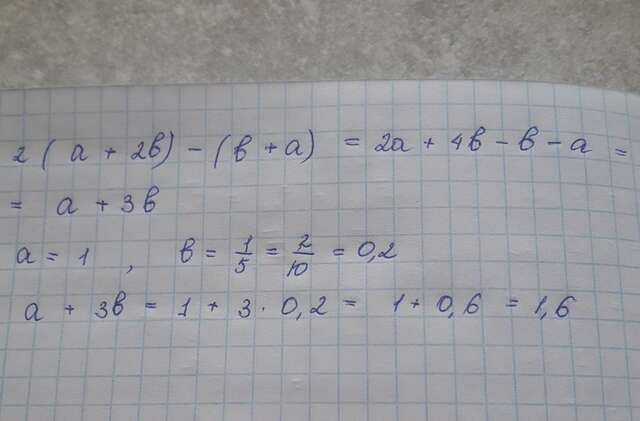 2 ( a + 2в) - (в + a) = 2a + 4в - в - a =
= a + 3в
a = 1 , в = 1/5 = 2/10 = 0,2
a + 3в = 1 + 3 · 0,2 = 1 + 0,6 = 1,6